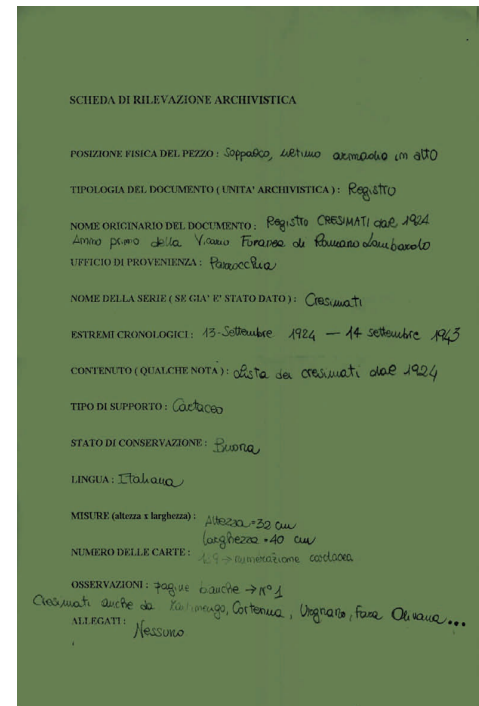 SCHEDA DI RILEVAZIONE ARCHIVISTICA
POSIZIONE FISICA DEL PEZZO : Soppalco, ultimo armadio in alto
TIPOLOGIA DEL DOCUMENTO ( UNITA' ARCHIVISTICA ) : Registro
NOME ORIGINARIO DEL DOCUMENTO : Registro CRESIMATI dal 1924
Anno primo della Vicaria Foranea di Romano Lombardo
UFFICIO DI PROVENIENZA : Parrocchia
NOME DELLA SERIE ( SE GIA' E' STATO DATO ) : Cresimati
ESTREMI CRONOLOGICI : 13 Settembre 1924 — 14 settembre 1943
CONTENUTO ( QUALCHE NOTA ) : Lista dei cresimati dal 1924
TIPO DI SUPPORTO : Cartaceo
STATO DI CONSERVAZIONE : Buona
LINGUA : Italiana
MISURE (altezza x larghezza) : Altezza = 32 cm
larghezza = 40 cm
NUMERO DELLE CARTE : 129 → numerazione cartacea
OSSERVAZIONI : pagine bianche → N° 1
Cresimati anche da Cortenuova, Urgnano, Fara Olivana...
ALLEGATI : Nessuno